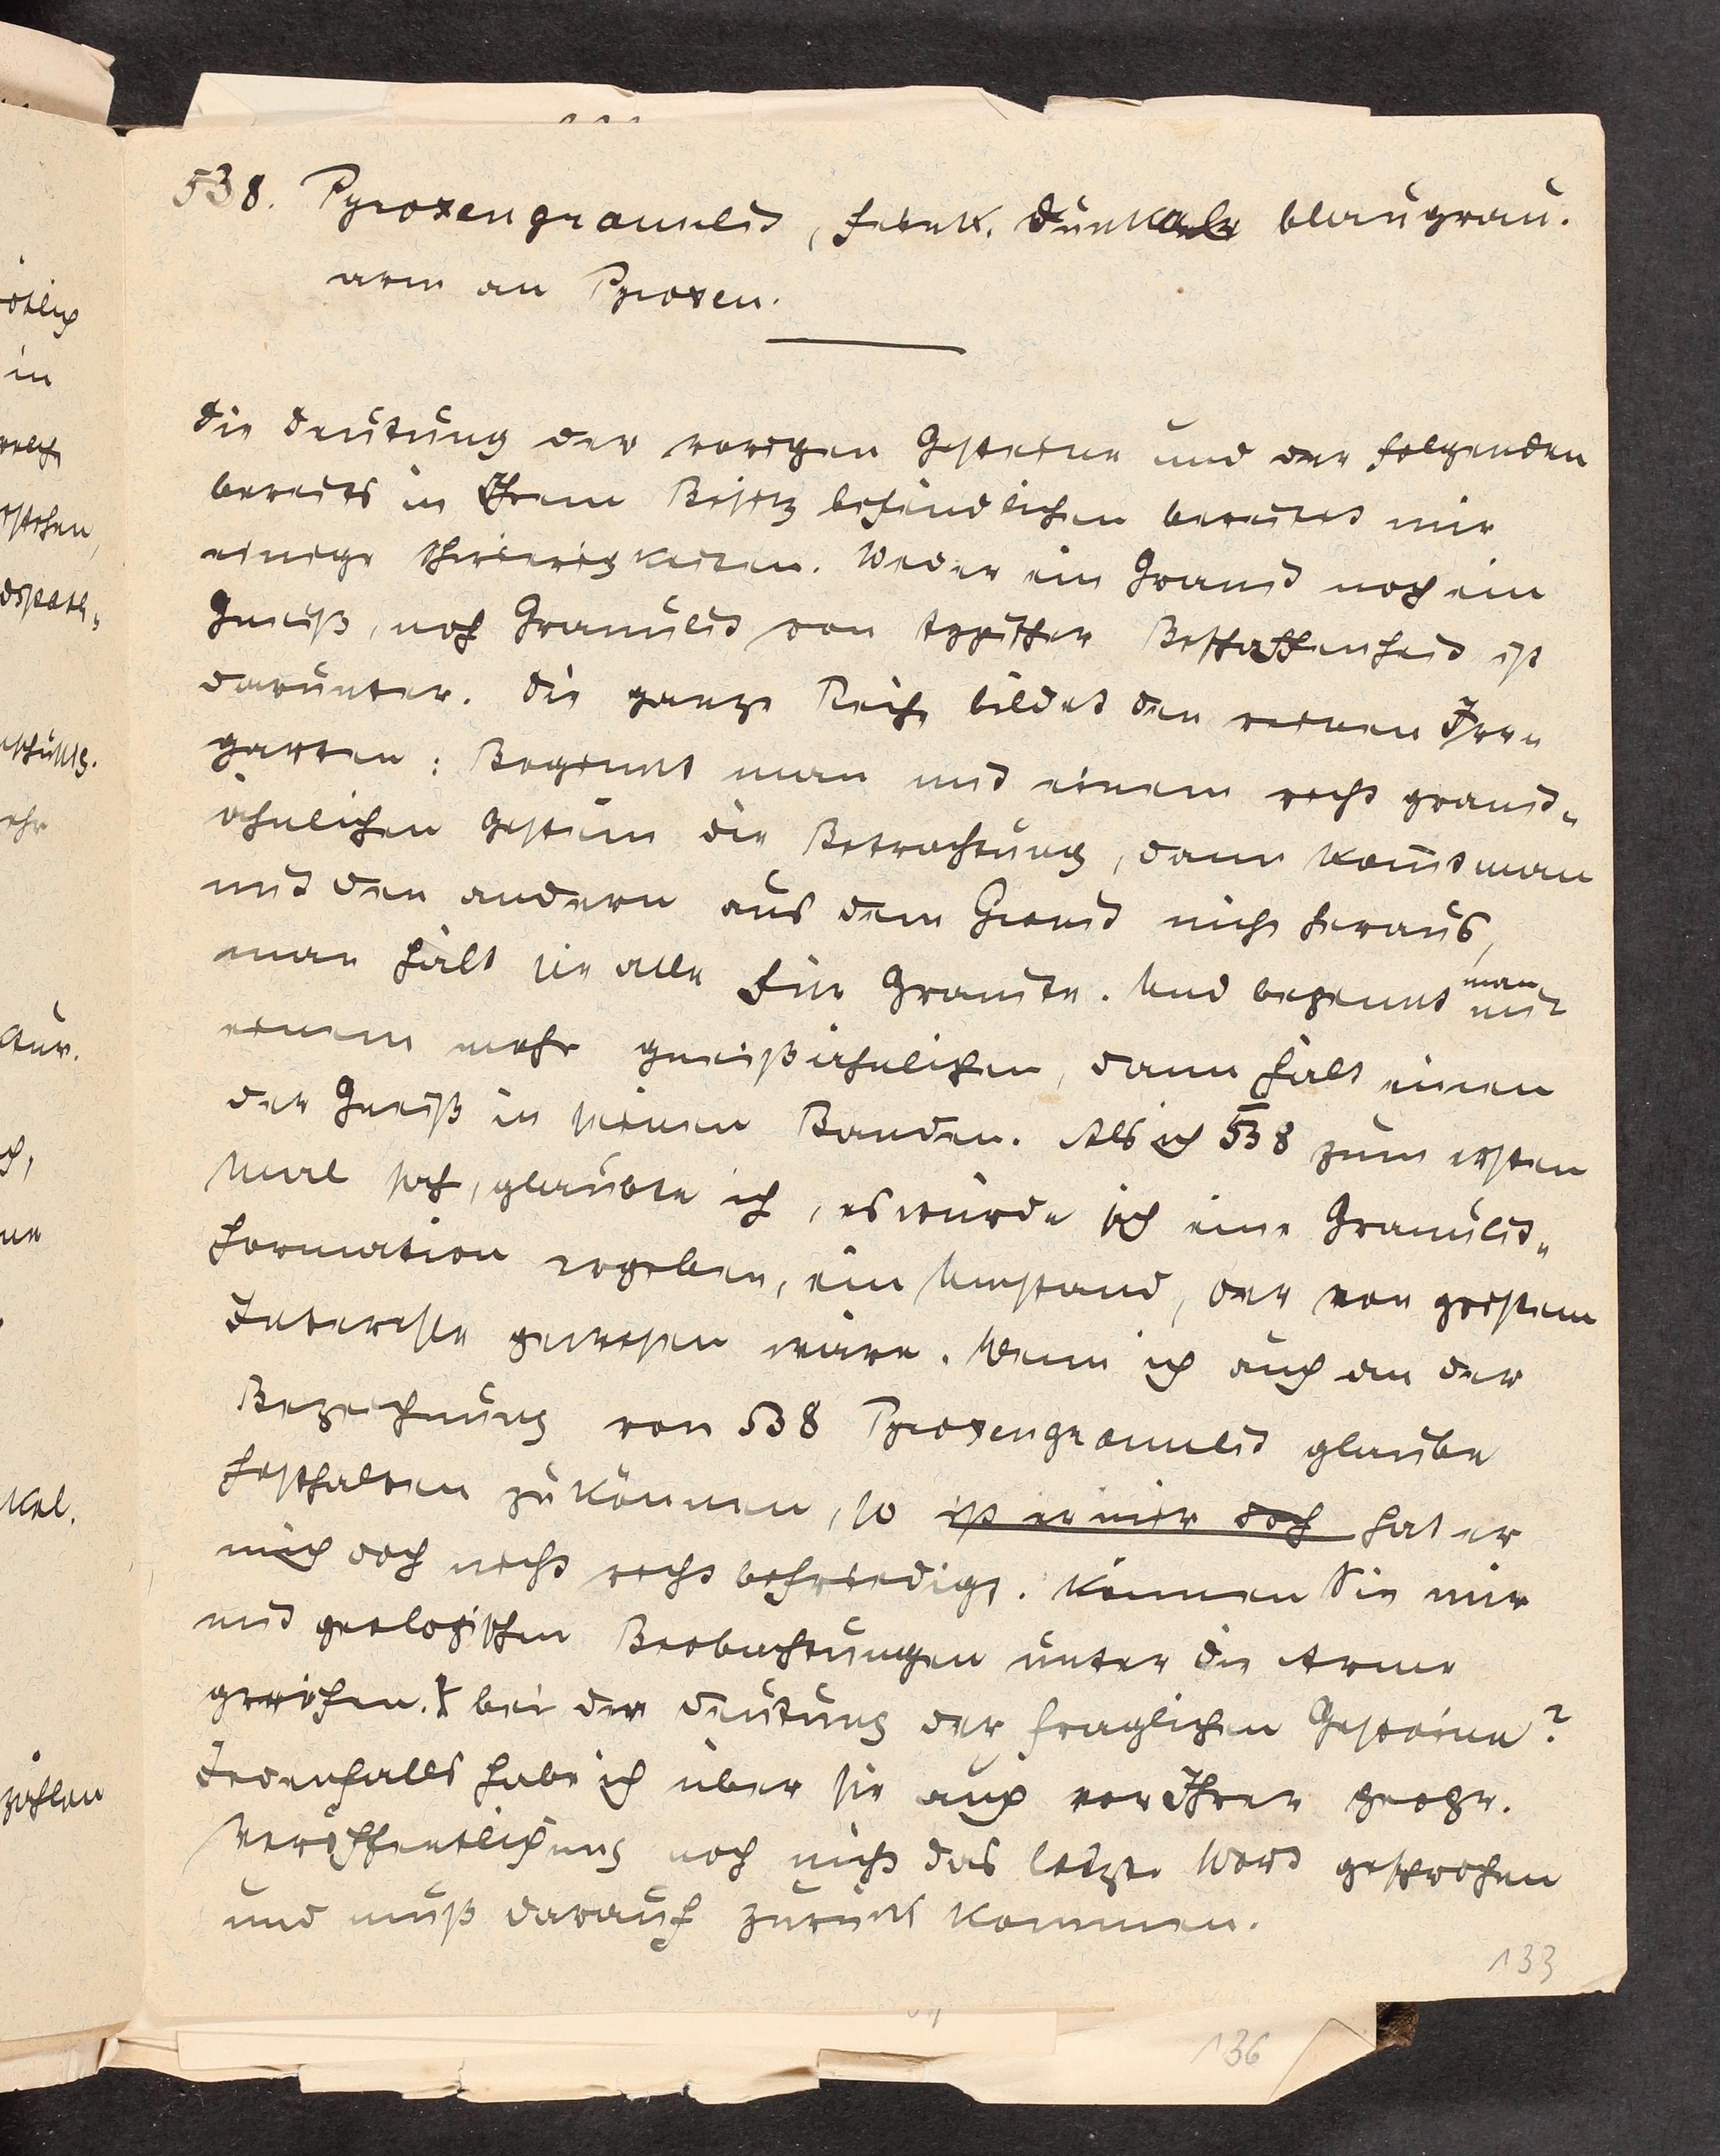 538. Pyroxengranulit, feink. dunkel blaugrau.
arm an Pyroxen.
Die Deutung der vorigen Gesteine und der folgenden
bereits in Ihrem Besitz befindlichen bereitet mir
einige Schwierigkeiten. Weder ein Granit noch ein
Gneiß, noch Granulit von typischer Beschaffenheit ist
darunter. Die ganze Reihe bildet den reinen Irr-
garten: Beginnt man mit einem recht granit-
ähnlichen Gestein die Betrachtung, dann kom̄t man
mit den andern aus dem Granit nicht heraus,
man hält sie alle für Granite. Und beginnt man mit
einem mehr gneißähnlichen, dann hält einen
der Gneiß in seinen Banden. Als ich 538 zum ersten
Mal sah, glaubte ich, es würde sich eine Granulit-
formation ergeben, ein Umstand, der von größtem
Interesse gewesen wäre. Wenn ich auch an der
Bezeichnung von 538 Pyroxengranulit glaube
festhalten zu können, so ist er mir doch hat er
mich doch nicht recht befriedigt. Können Sie mir
mit geologischen Beobachtungen unter die Arme
greifen. bei der Deutung der fraglichen Gesteine?
Jedenfalls habe ich über sie auch vor Ihrer geogr.
Veröffentlichung noch nicht das letzte Wort gesprochen
und muß darauf zurück kommen.
133
136
ötlich
in
welch
stehen,
dspath-
schützg.
ehr
Aur.
ch,
ne
kel.
zählen